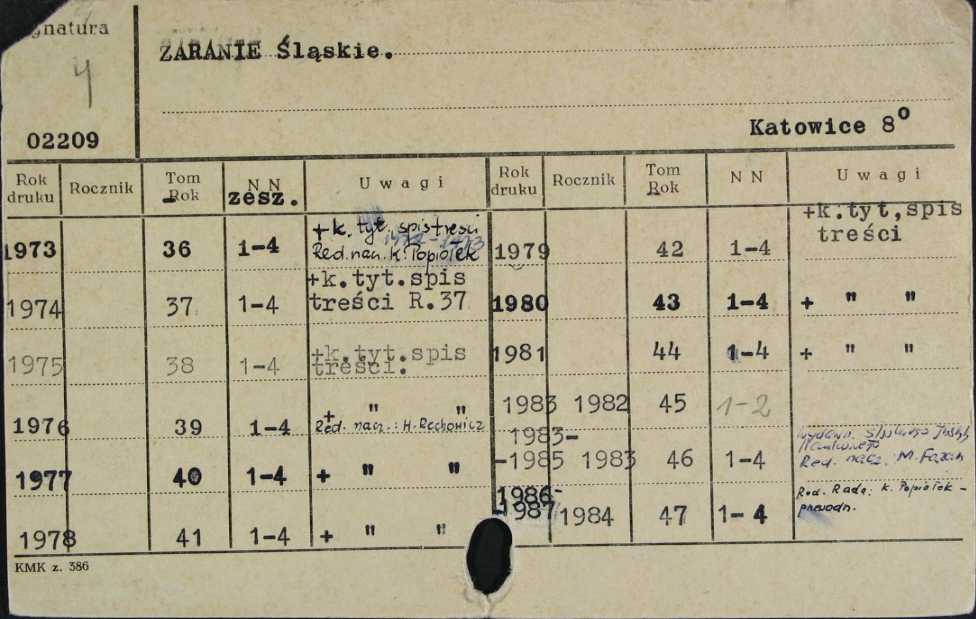 Sygnatura
4
ZARANIE Śląskie.
02209
Katowice 8°
Rok druku Rocznik Tom Rok N N zesz. Uwagi
1973 36 1-4 +k. tyt. spis treści
Red. nacz. K. Popiołek
1974 37 1-4 +k.tyt.spis
treści R.37
1975 38 1-4 +k.tyt.spis
treści.
1976 39 1-4 + " "
Red. nacz.: H. Rechowicz
1977 40 1-4 + " "
1978 41 1-4 + " "
Rok druku Rocznik Tom Rok N N Uwagi
1979 42 1-4 +k.tyt,spis
treści
1980 43 1-4 + " "
1981 44 1-4 + " "
1983 1982 45 1-2
1983-
-1985 1983 46 1-4
Red. nacz. M. Fazan
1986-
1987 1984 47 1-4 Red. Rada: K. Popiołek -
przewodn.
KMK z. 386